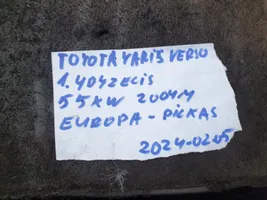 TOYOTA YARIS VERSO
1.4D4D ZECIS
55KW 2004M
EUROPA - PILKAS
2024-02.05